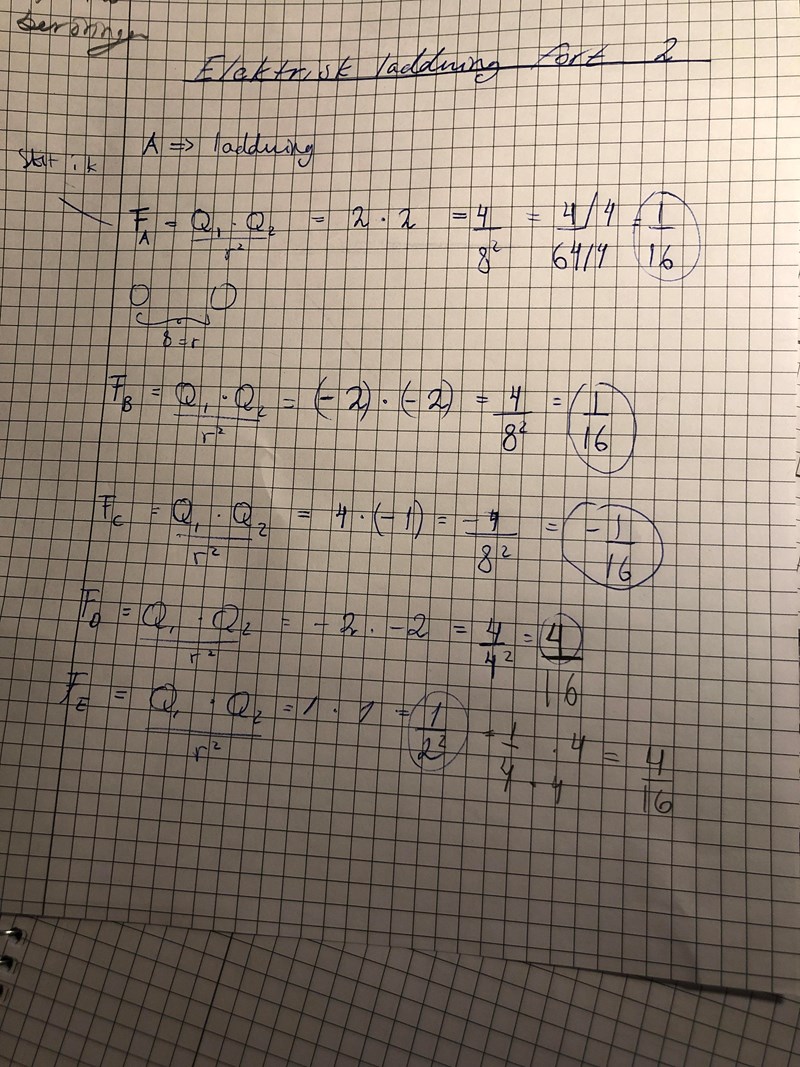 Elektrisk laddning fort 2
A => laddning
F_A = Q₁ · Q₂ / r² = 2 · 2 = 4 / 8² = 4/4 / 64/4 = 1 / 16
8 = r
F_B = Q₁ · Q₂ / r² = (-2) · (-2) = 4 / 8² = 1 / 16
F_C = Q₁ · Q₂ / r² = 4 · (-1) = -4 / 8² = -1 / 16
F_D = Q₁ · Q₂ / r² = -2 · -2 = 4 / 4² = 4 / 16
F_E = Q₁ · Q₂ / r² = 1 · 1 = 1 / 2² = 1 · 4 / 4 · 4 = 4 / 16